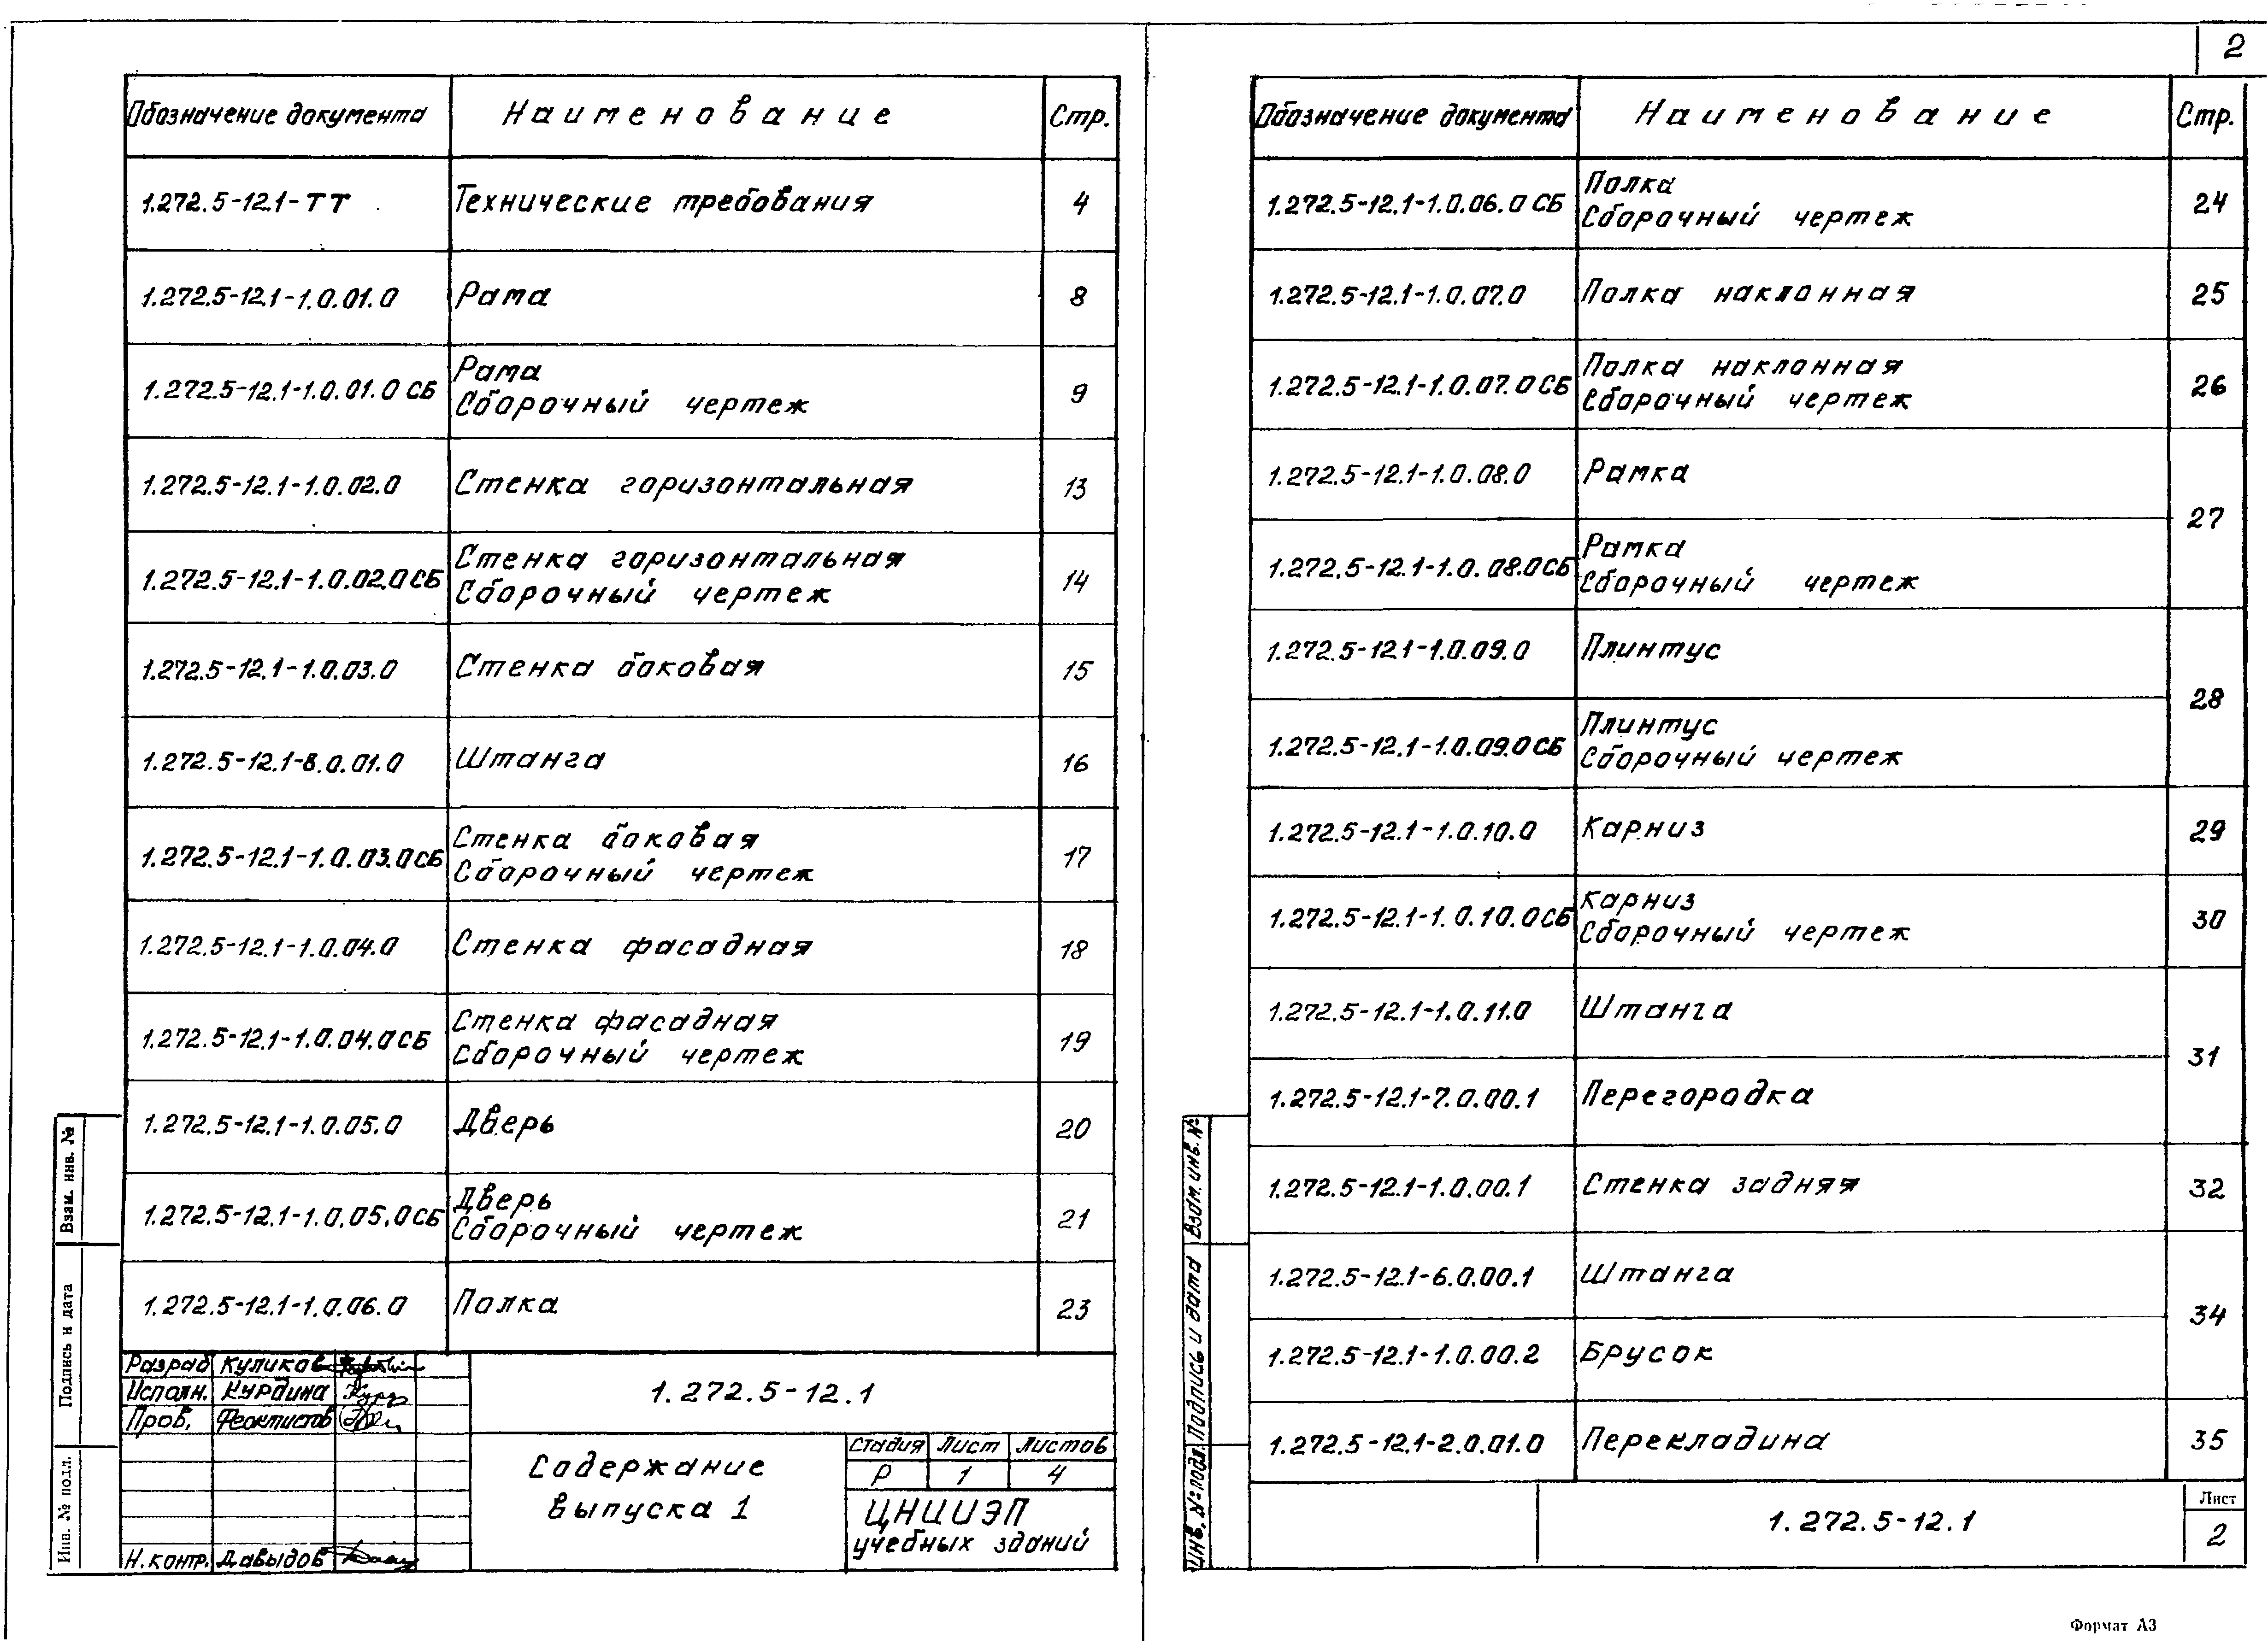 2
Обозначение документа Наименование Стр.
1.272.5-12.1-ТТ Технические требования 4
1.272.5-12.1-1.0.01.0 Рама 8
1.272.5-12.1-1.0.01.0 СБ Рама
Сборочный чертеж 9
1.272.5-12.1-1.0.02.0 Стенка горизонтальная 13
1.272.5-12.1-1.0.02.0СБ Стенка горизонтальная
Сборочный чертеж 14
1.272.5-12.1-1.0.03.0 Стенка боковая 15
1.272.5-12.1-8.0.01.0 Штанга 16
1.272.5-12.1-1.0.03.0СБ Стенка боковая
Сборочный чертеж 17
1.272.5-12.1-1.0.04.0 Стенка фасадная 18
1.272.5-12.1-1.0.04.0СБ Стенка фасадная
Сборочный чертеж 19
1.272.5-12.1-1.0.05.0 Дверь 20
1.272.5-12.1-1.0.05.0СБ Дверь
Сборочный чертеж 21
1.272.5-12.1-1.0.06.0 Полка 23
Разраб Куликов
Исполн. Курдина
Пров. Феоктистов
Н.контр. Давыдов
1.272.5-12.1
Содержание
выпуска 1
Стадия Лист Листов
Р 1 4
ЦНИИЭП
учебных зданий
Взам. инв. №
Подпись и дата
Инв. № подл.
Обозначение документа Наименование Стр.
1.272.5-12.1-1.0.06.0 СБ Полка
Сборочный чертеж 24
1.272.5-12.1-1.0.07.0 Полка наклонная 25
1.272.5-12.1-1.0.07.0СБ Полка наклонная
Сборочный чертеж 26
1.272.5-12.1-1.0.08.0 Рамка
27
1.272.5-12.1-1.0.08.0СБ Рамка
Сборочный чертеж
1.272.5-12.1-1.0.09.0 Плинтус
28
1.272.5-12.1-1.0.09.0СБ Плинтус
Сборочный чертеж
1.272.5-12.1-1.0.10.0 Карниз 29
1.272.5-12.1-1.0.10.0СБ Карниз
Сборочный чертеж 30
1.272.5-12.1-1.0.11.0 Штанга
31
1.272.5-12.1-7.0.00.1 Перегородка
1.272.5-12.1-1.0.00.1 Стенка задняя 32
1.272.5-12.1-6.0.00.1 Штанга
34
1.272.5-12.1-1.0.00.2 Брусок
1.272.5-12.1-2.0.01.0 Перекладина 35
1.272.5-12.1
Лист
2
Взам. инв. №
Подпись и дата
Инв. № подл.
Формат А3